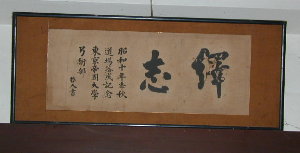 繹志
昭和十年春秋
道場落成記念
東京帝国大学
弓術部